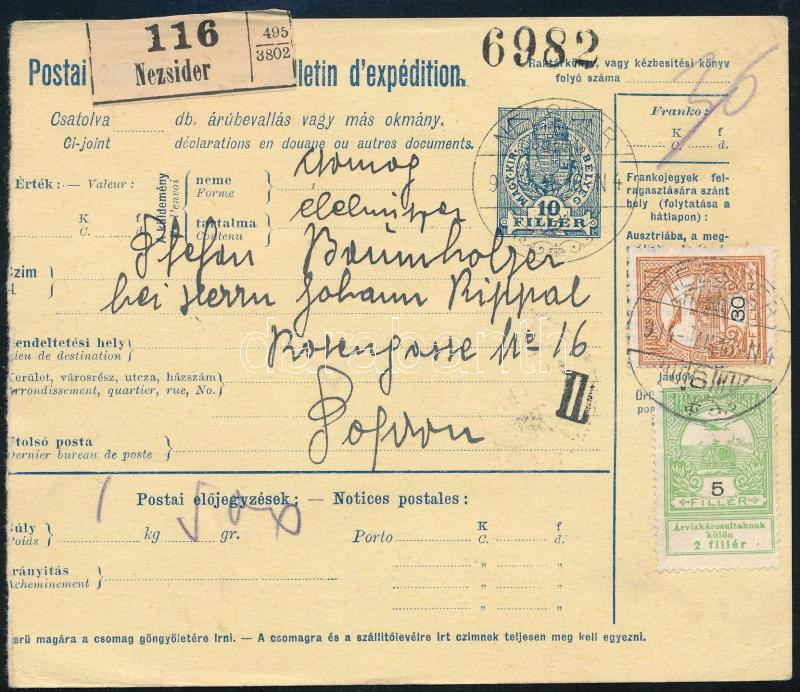 116
495
3802
Nezsider
6982
Postai
lletin d'expédition.
Raktárkönyv, vagy kézbesitési könyv
folyó száma
36
Csatolva db. árúbevallás vagy más okmány.
Ci-joint déclarations en douane ou autres documents.
Franko:
K f
C. d.
Érték:— Valeur:
K f
C. d.
A küldemény
l'envoi
neme
Forme
tartalma
Contenu
csomag
élelmiszer
MAGY. KIR.
ABÉLYEG
10
FILLÉR
Frankojegyek fel-
ragasztására szánt
hely (folytatása a
hátlapon):
Ausztriába, a meg-
Stefan Baumholzer
bei Herrn Johann Rippal
Rosengasse No 16
Sopron
Czim
rendeltetési hely)
Lieu de destination)
Kerület, városrész, utcza, házszám
Arrondissement, quartier, rue, No.
Utolsó posta
Dernier bureau de poste
II
30
FILLÉR
5
FILLÉR
Árvízkárosultaknak
külön
2 fillér
darabanth
Postai előjegyzések: — Notices postales:
Súly
Poids
kg gr.
Porto
K f
C. d.
Irányitás
Acheminement
erü magára a csomag göngyöletére irni. — A csomagra és a szállitólevélre irt czimnek teljesen meg kell egyezni.